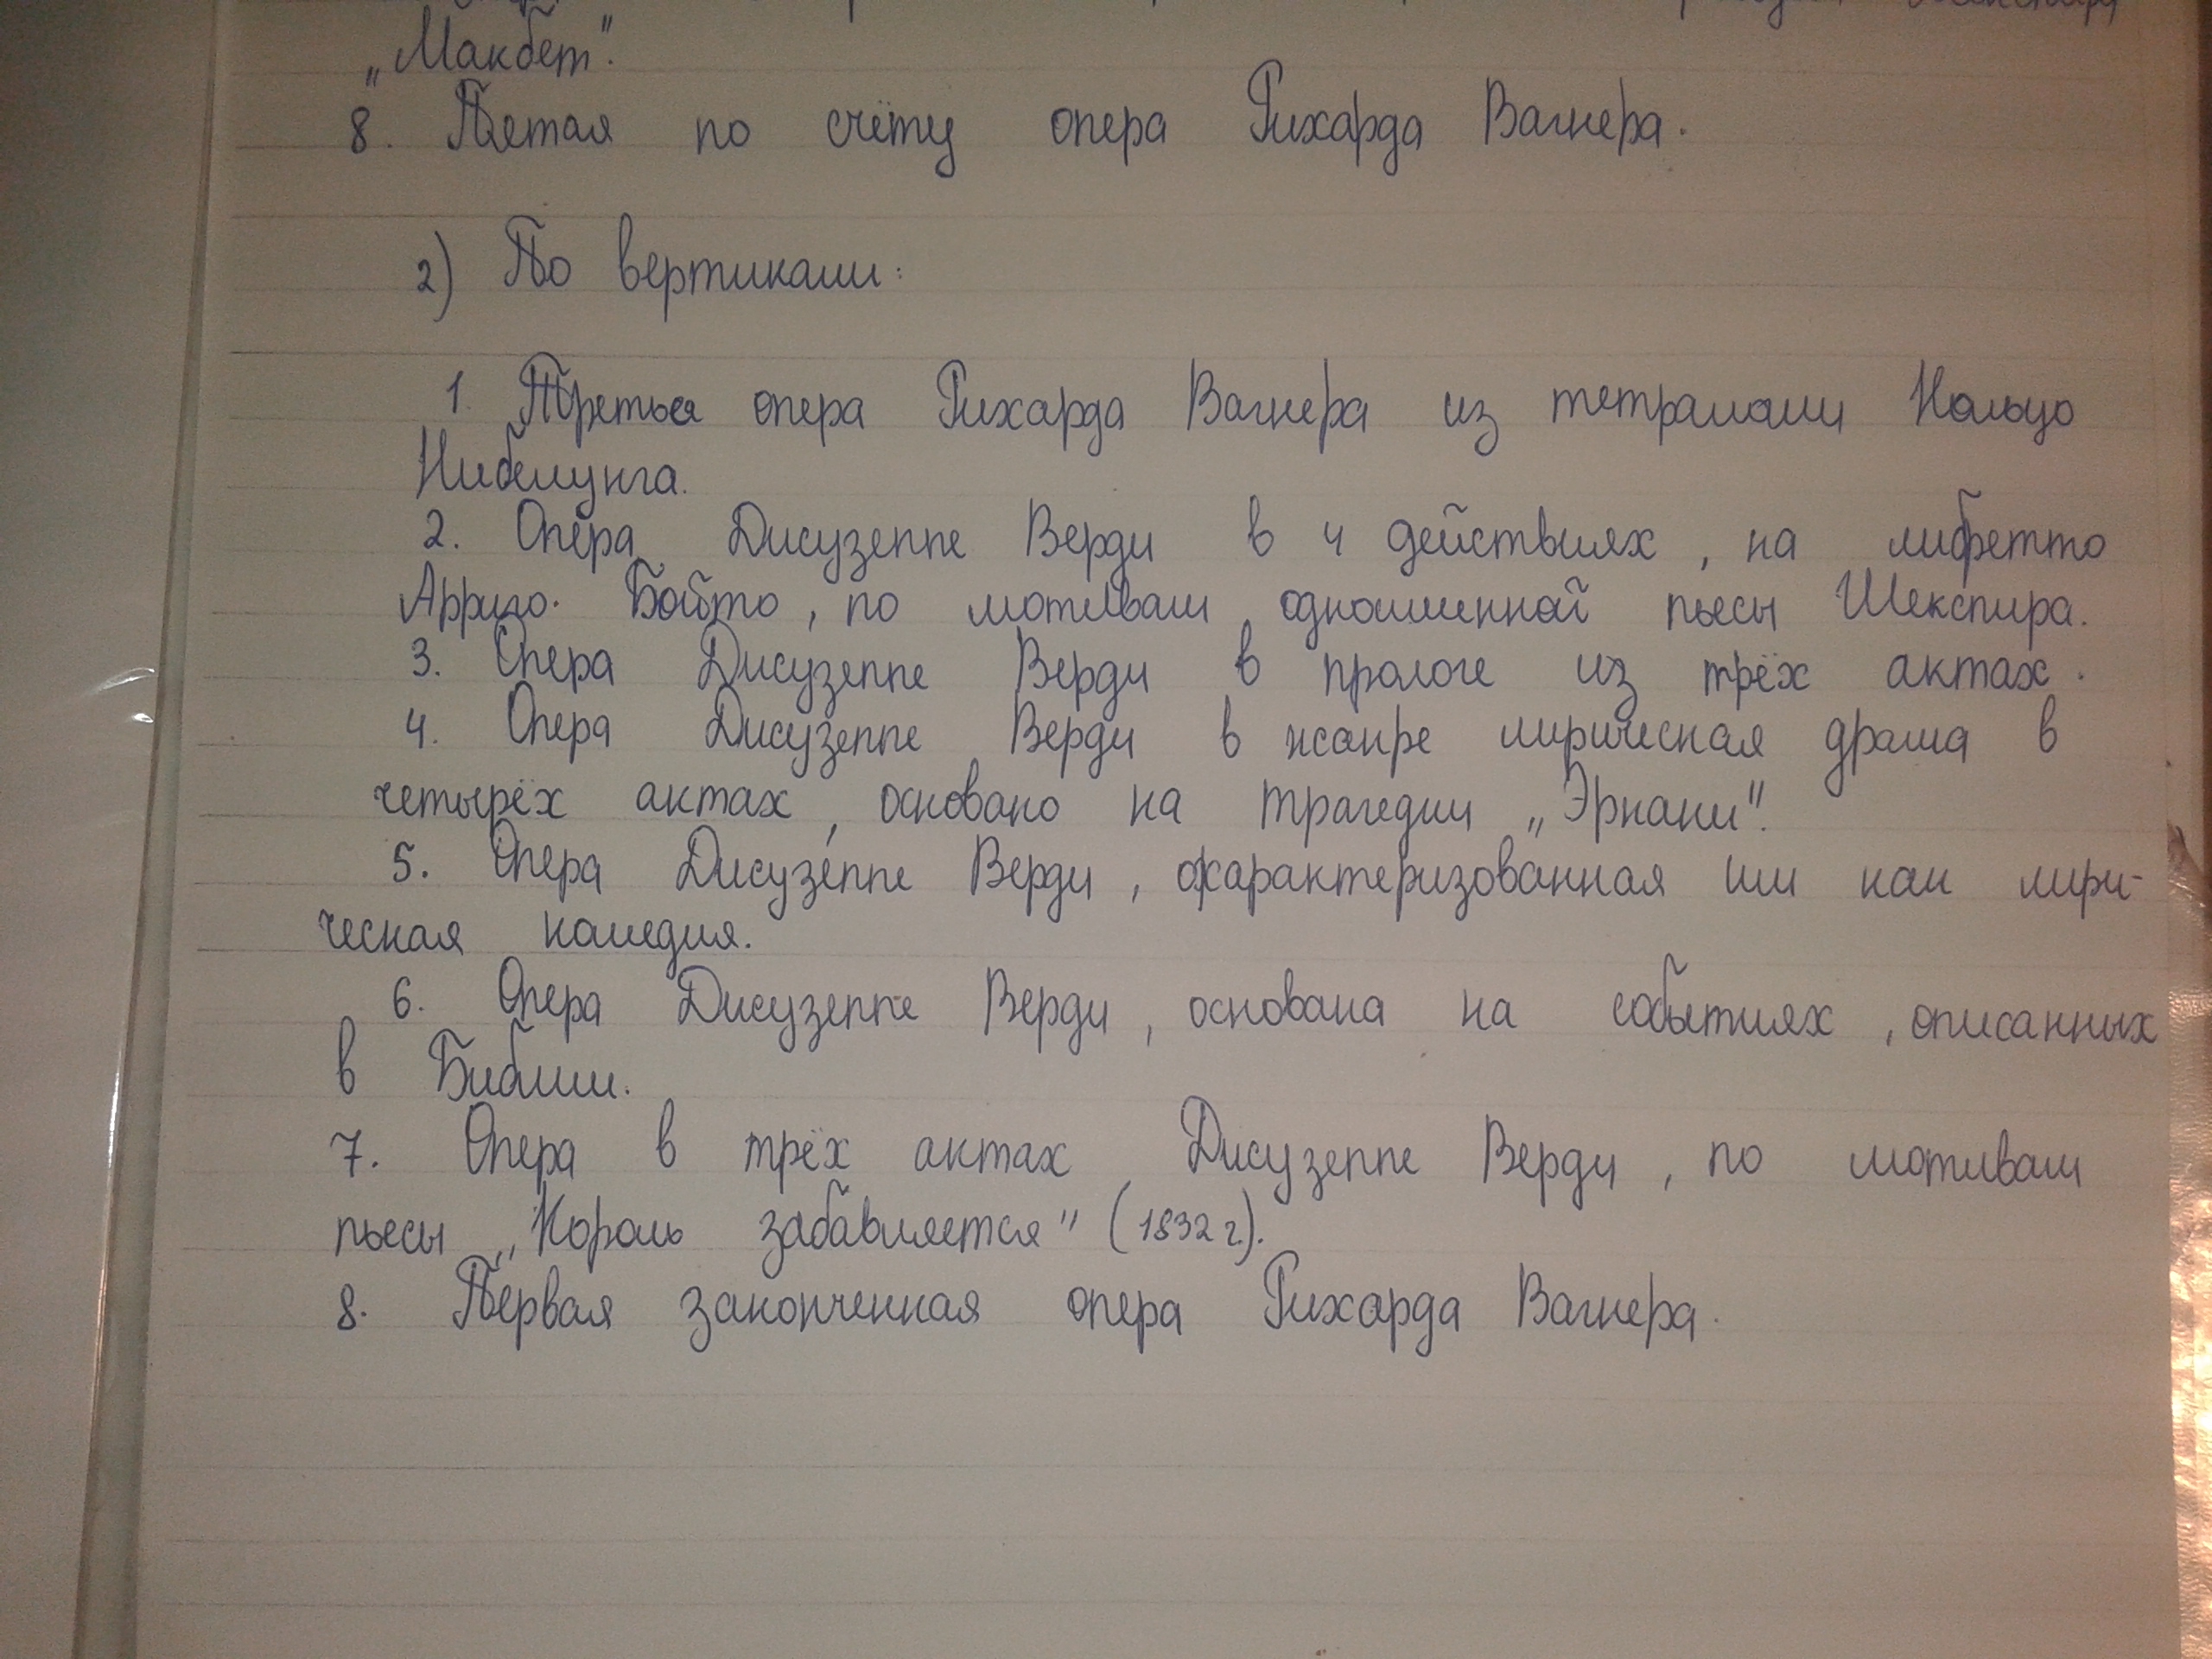 „Макбет".
8. Пятая по счёту опера Рихарда Вагнера.
2) По вертикали:
1. Третья опера Рихарда Вагнера из тетралогии Кольцо
Нибелунга.
2. Опера Джузеппе Верди в 4 действиях, на либретто
Арриго Бойто, по мотивам одноимённой пьесы Шекспира.
3. Опера Джузеппе Верди в прологе из трёх актах.
4. Опера Джузеппе Верди в жанре лирическая драма в
четырёх актах, основано на трагедии „Эрнани".
5. Опера Джузеппе Верди, охарактеризованная им как лири-
ческая комедия.
6. Опера Джузеппе Верди, основана на событиях, описанных
в Библии.
7. Опера в трёх актах Джузеппе Верди, по мотивам
пьесы „Король забавляется" (1832 г.).
8. Первая законченная опера Рихарда Вагнера.